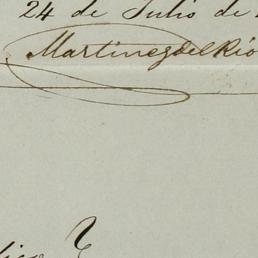 24 de Julio de
Martinez del Rio